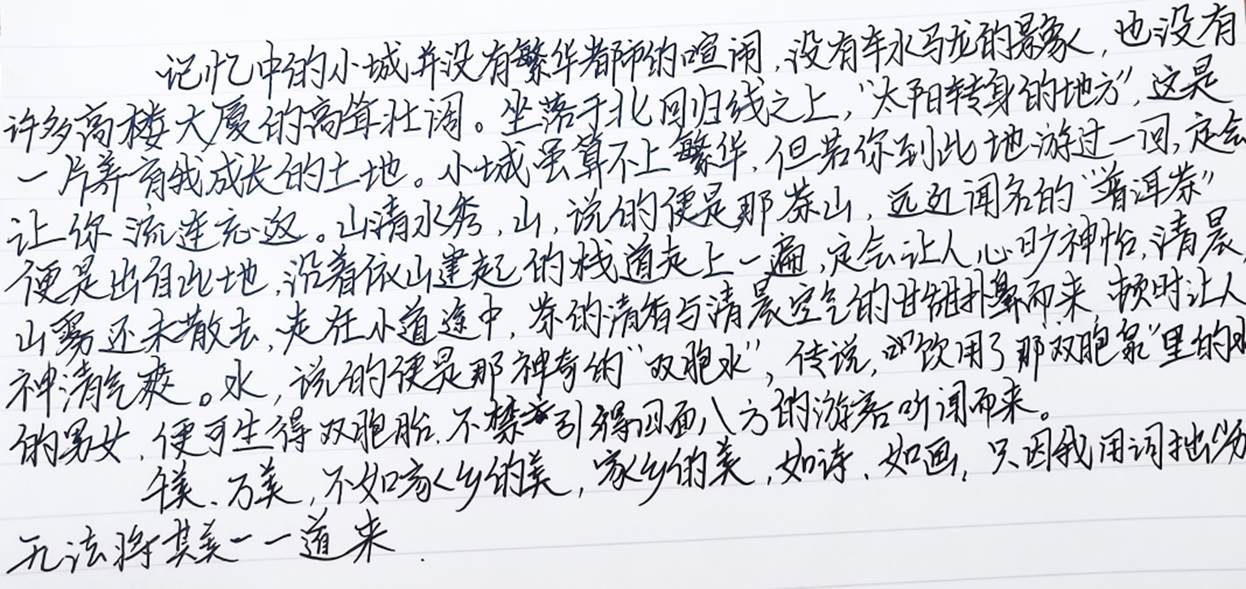 记忆中的小城并没有繁华都市的喧闹,没有车水马龙的景象,也没有
许多高楼大厦的高耸壮阔。坐落于北回归线之上,“太阳转身的地方”,这是
一片养育我成长的土地。小城虽算不上繁华,但若你到此地游过一回,定会
让你流连忘返。山清水秀,山,说的便是那茶山,远近闻名的“普洱茶”
便是出自此地,沿着依山建起的栈道走上一遍,定会让人心旷神怡,清晨,
山雾还未散去,走在小道途中,茶的清香与清晨空气的甘甜扑鼻而来,顿时让人
神清气爽。水,说的便是那神奇的“双胞水”,传说,饮用了那“双胞泉”里的水
的男女,便可生得双胞胎.不禁引得四面八方的游客听闻而来。
千美、万美,不如家乡的美,家乡的美,如诗、如画,只因我用词拙劣
无法将其美一一道来.